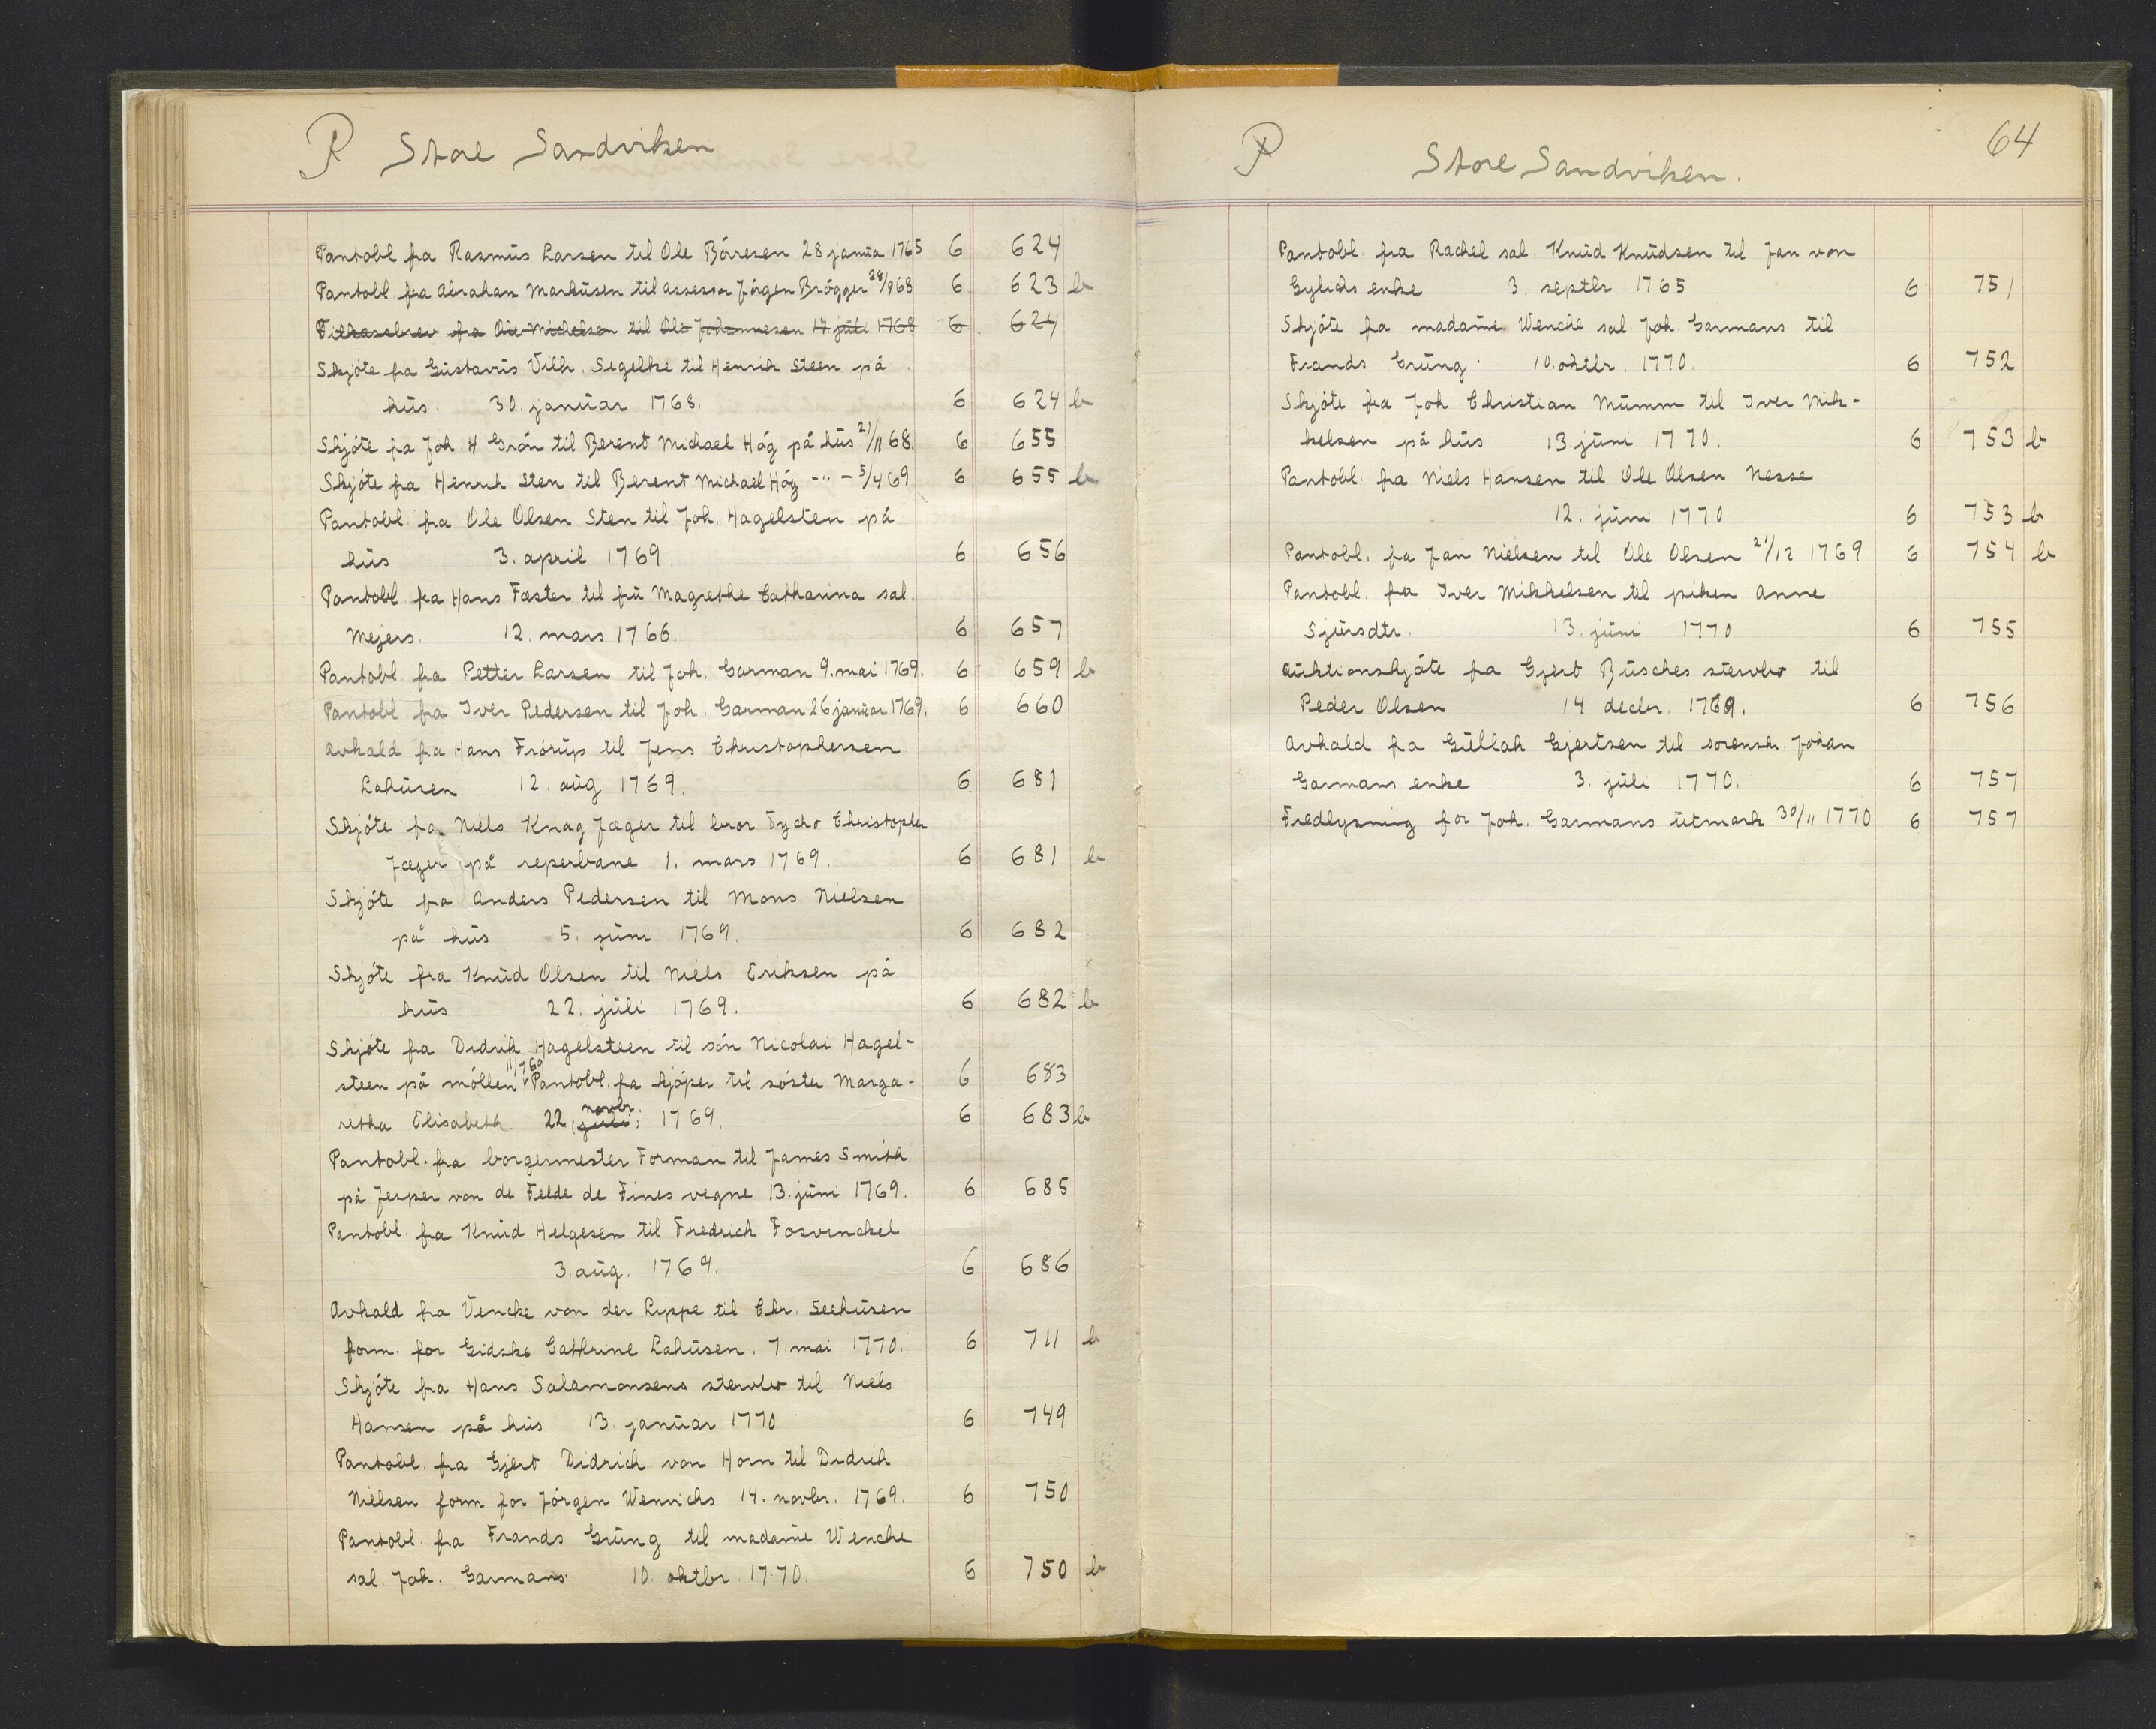 R Store Sandviken
Pantobl fra Rasmus Larsen til Ole Börresen 28 janua 1765 6 624
Pantobl. fra Abrahan Markusen til assessor Jörgen Brögger 28/9 68 6 623 b
Skjöte fra Gustavus Vilh. Segelke til Henrik Steen på
hus. 30. januar 1768. 6 624 b
Skjöte fra Joh H Grön til Berent Michael Hög på hus 21/11 68. 6 655
Skjöte fra Henrik Sten til Berent Michael Hög -"- 5/4 69 6 655 b
Pantobl. fra Ole Olsen Sten til Joh. Hagelsten på
hus 3. april 1769. 6 656
Pantobl fra Hans Fæster til fru Magrethe Catharina sal.
Mejers. 12. mars 1766. 6 657
Pantobl fra Petter Larsen til Joh. Garman 9. mai 1769. 6 659 b
Pantobl fra Iver Pedersen til Joh. Garman 26 januar 1769. 6 660
Avkald fra Hans Frörup til Jens Christophersen
Lahusen 12. aug 1769. 6 681
Skjöte fra Niels Knag Jæger til bror Tycho Christopher
Jæger på reperbane 1. mars 1769. 6 681 b
Skjöte fra Anders Pedersen til Mons Nielsen
på hus 5. juni 1769. 6 682
Skjöte fra Knud Olsen til Niels Eriksen på
hus 22. juli 1769. 6 682 b
Skjöte fra Didrik Hagelsteen til sön Nicolai Hagel-
steen på möllen 11/7 69 Pantobl. fra kjöper til söster Marga- 6 683
retha Elisabeth. 22. juli novbr. 1769. 6 683 b
Pantobl. fra borgermester Forman til James Smith
på Jesper von de Felde de Fines vegne 13. juni 1769. 6 685
Pantobl. fra Knud Helgesen til Fredrich Fosvinckel
3. aug. 1769. 6 686
Avkald fra Vencke von der Lippe til Chr. Seehusen
form. for Gidske Cathrine Lahusen. 7. mai 1770. 6 711 b
Skjöte fra Hans Salamonsens stervbo til Niels
Hansen på hus 13. januar 1770 6 749
Pantobl. fra Gjert Didrich von Horn til Didrik
Nielsen form for Jörgen Wenrichs 14. novbr. 1769. 6 750
Pantobl. fra Frands Grung til madame Wenche
sal. Joh. Garmans 10. oktbr. 1770. 6 750 b
R Store Sandviken. 64
Pantobl. fra Rachel sal. Knud Knudsen til Jan von
Gylichs enke 3. septbr. 1765 6 751
Skjöte fra madame Wenche sal Joh. Garmans til
Frands Grung. 10. oktbr. 1770. 6 752
Skjöte fra Joh. Christian Mumm til Iver Mik-
kelsen på hus 13. juni 1770. 6 753 b
Pantobl. fra Niels Hansen til Ole Olsen Nesse
12. juni 1770 6 753 b
Pantobl. fra Jan Nielsen til Ole Olsen 21/12 1769 6 754 b
Pantobl. fra Iver Mikkelsen til piken Anne
Sjursdtr. 13. juni 1770 6 755
Auktionskjöte fra Gjert Busches stervbo til
Peder Olsen 14 decbr. 1769. 6 756
Avkald fra Gullak Gjertsen til sorensk. Johan
Garmans enke 3. juli 1770. 6 757
Fredlysning for Joh. Garmans utmark 30/11 1770 6 757